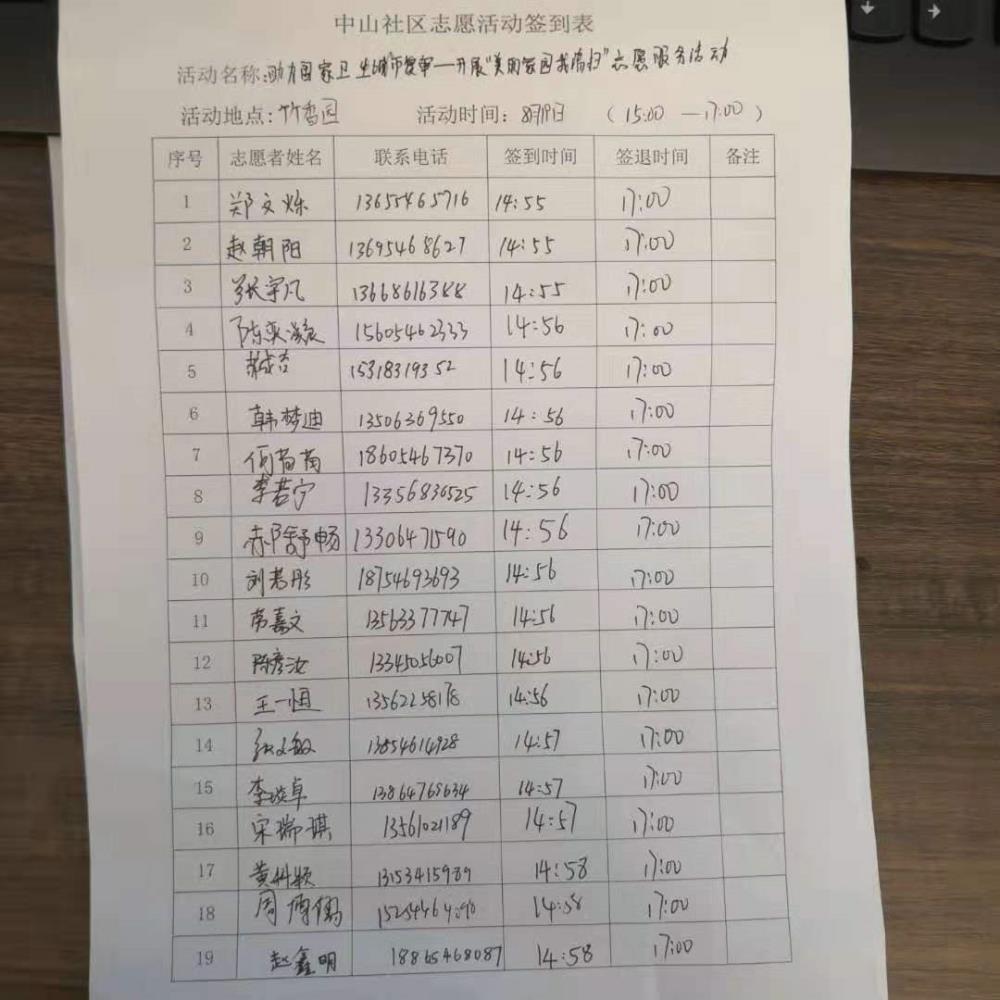 中山社区志愿活动签到表
活动名称:助力国家卫生城市复审——开展"美丽家园我清扫"志愿服务活动
活动地点:竹香园 活动时间: 8月19日 (15:00 —17:00)
序号 志愿者姓名 联系电话 签到时间 签退时间 备注
1 郑文烁 13655465716 14:55 17:00
2 赵朝阳 13695468627 14:55 17:00
3 张宇凡 13668616388 14:55 17:00
4 陈奕 15605462333 14:56 17:00
5 15318319352 14:56 17:00
6 韩梦迪 13506369550 14:56 17:00
7 何苗苗 18605467370 14:56 17:00
8 李若宁 13356836525 14:56 17:00
9 郝舒畅 13306471590 14:56 17:00
10 刘若彤 18754693693 14:56 17:00
11 常嘉文 13563377747 14:56 17:00
12 陈彦汝 13345056007 14:56 17:00
13 王一恒 13562258178 14:56 17:00
14 敏 13854614928 14:57 17:00
15 李 卓 13864768634 14:57 17:00
16 宋瑞琪 13561021189 14:57 17:00
17 黄 颖 13153415989 14:58 17:00
18 周 14:58 17:00
19 赵鑫明 18865468087 14:58 17:00